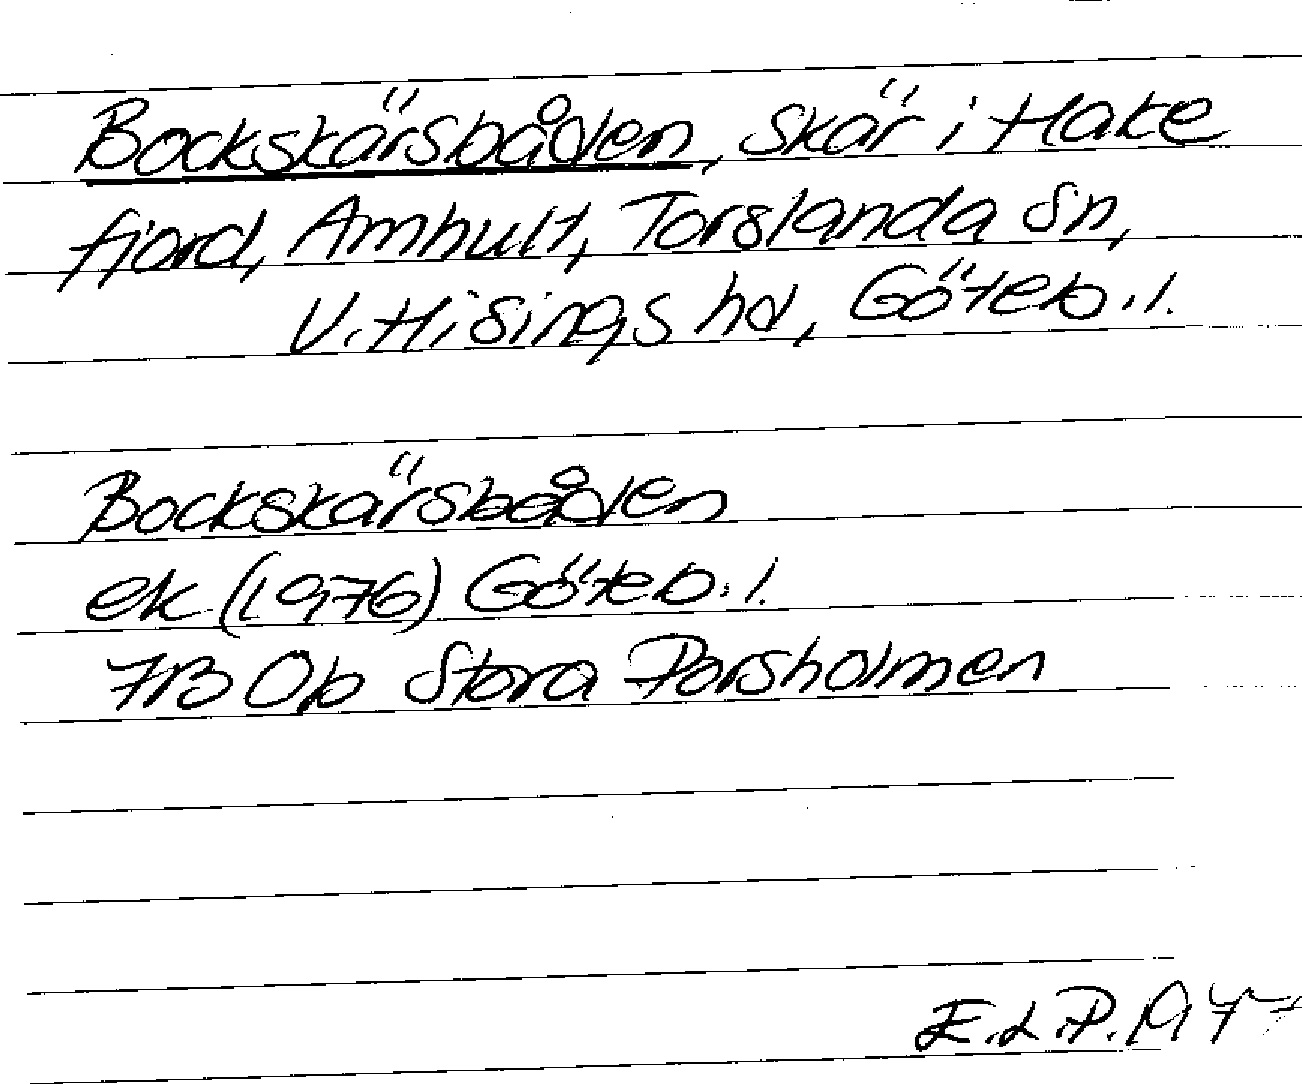 Bockskärsbåden, skär i Hake
fjord, Amhult, Torslanda sn,
V. Hisings hd, Göteb. l.
Bockskärsbåden
ek (1976) Göteb. l.
7B 0b Stora Porsholmen
E.L.P. 1977